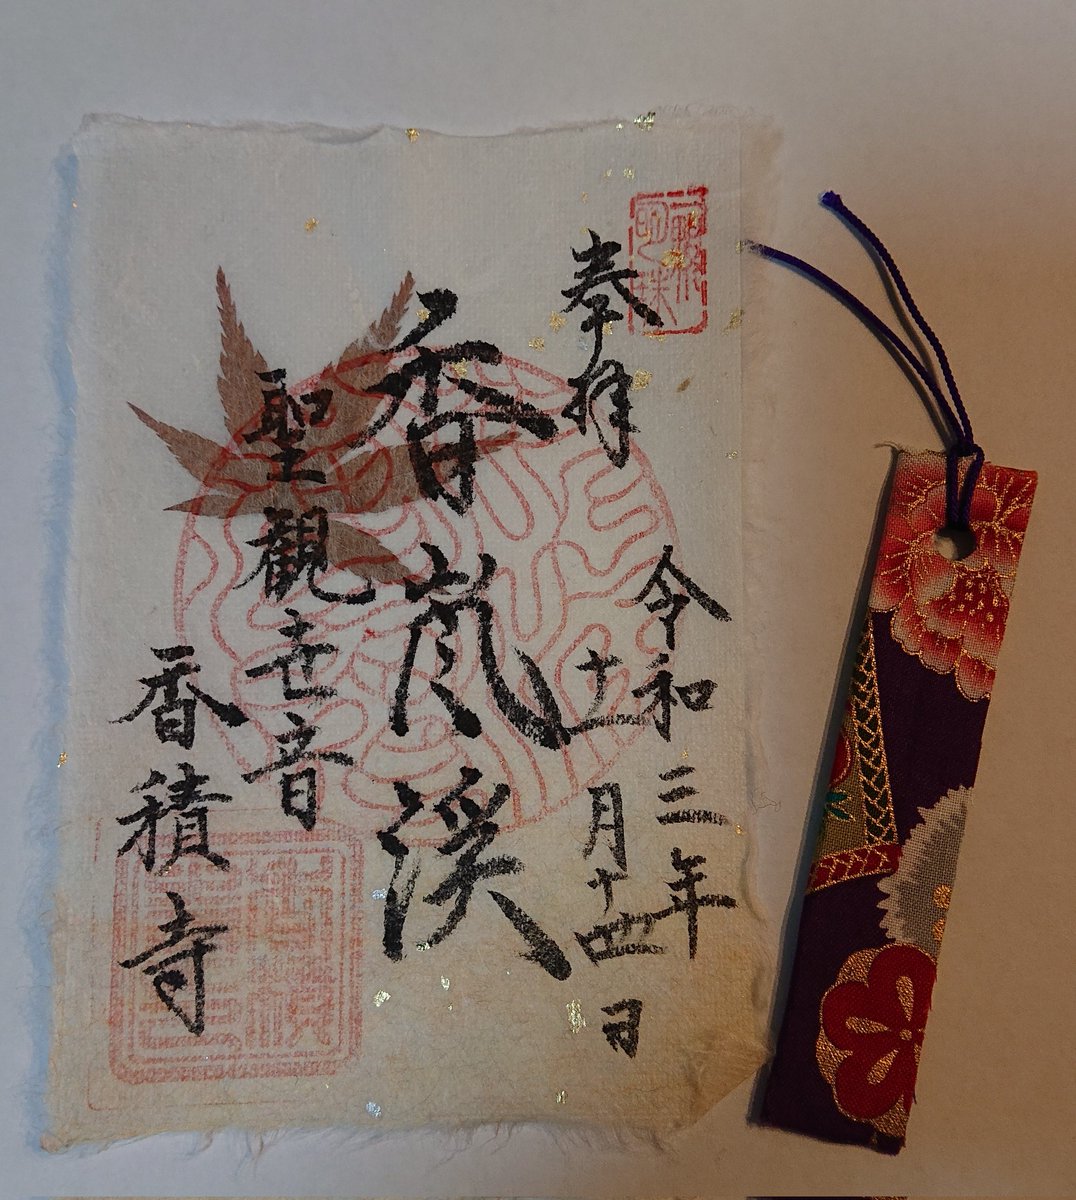 奉拝
令和三年
十一月十四日
香嵐渓
聖観世音
香積寺